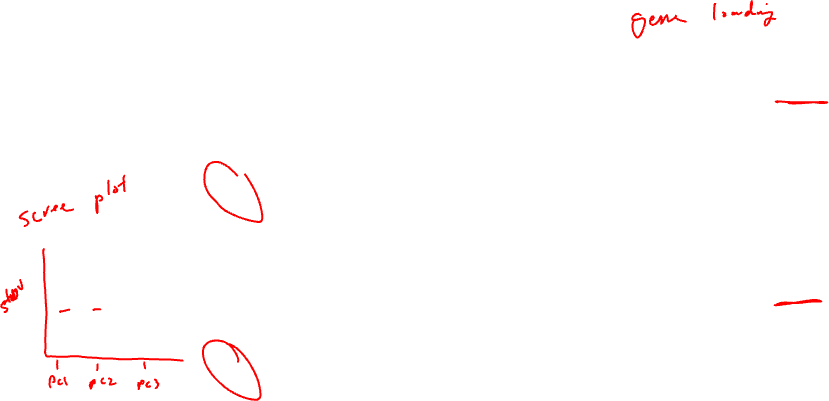 gene loading
scree plot
stdev
pc1 pc2 pc3